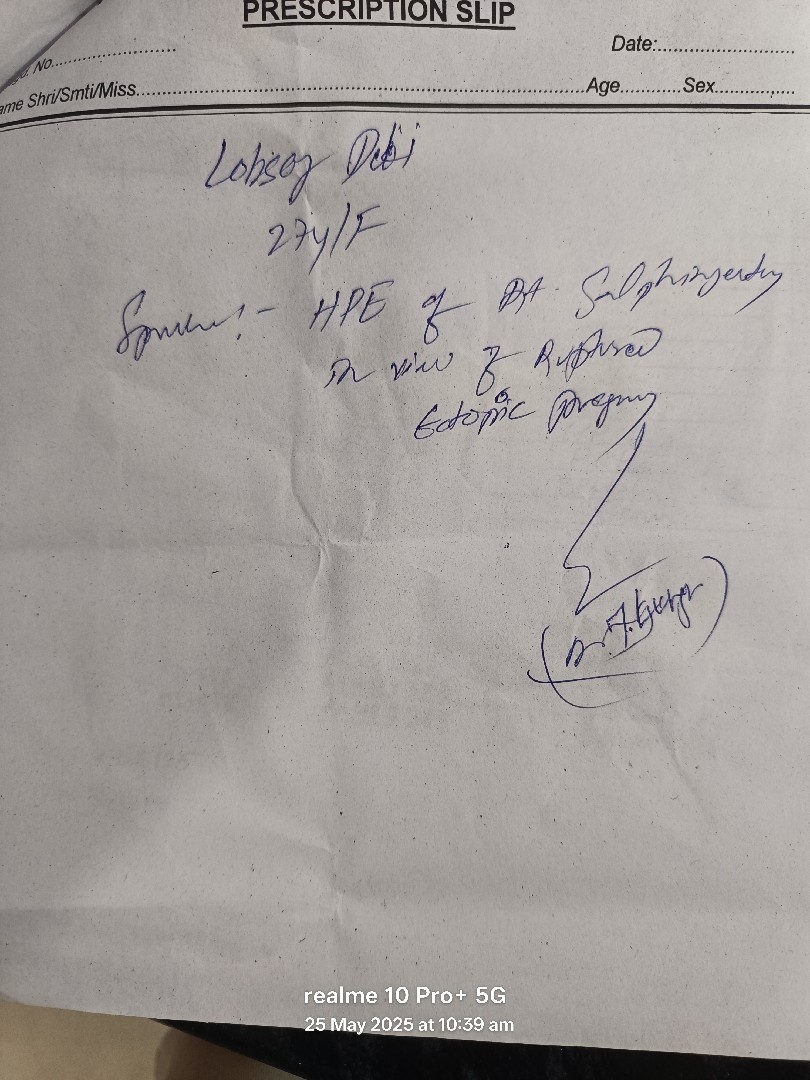 PRESCRIPTION SLIP
No....................
Date:........................
ame Shri/Smti/Miss.................................................................Age............Sex...............
Debi
27y/F
HPE of Salphingectomy
in view of Ruptured
Ectopic pregnancy
realme 10 Pro+ 5G
25 May 2025 at 10:39 am